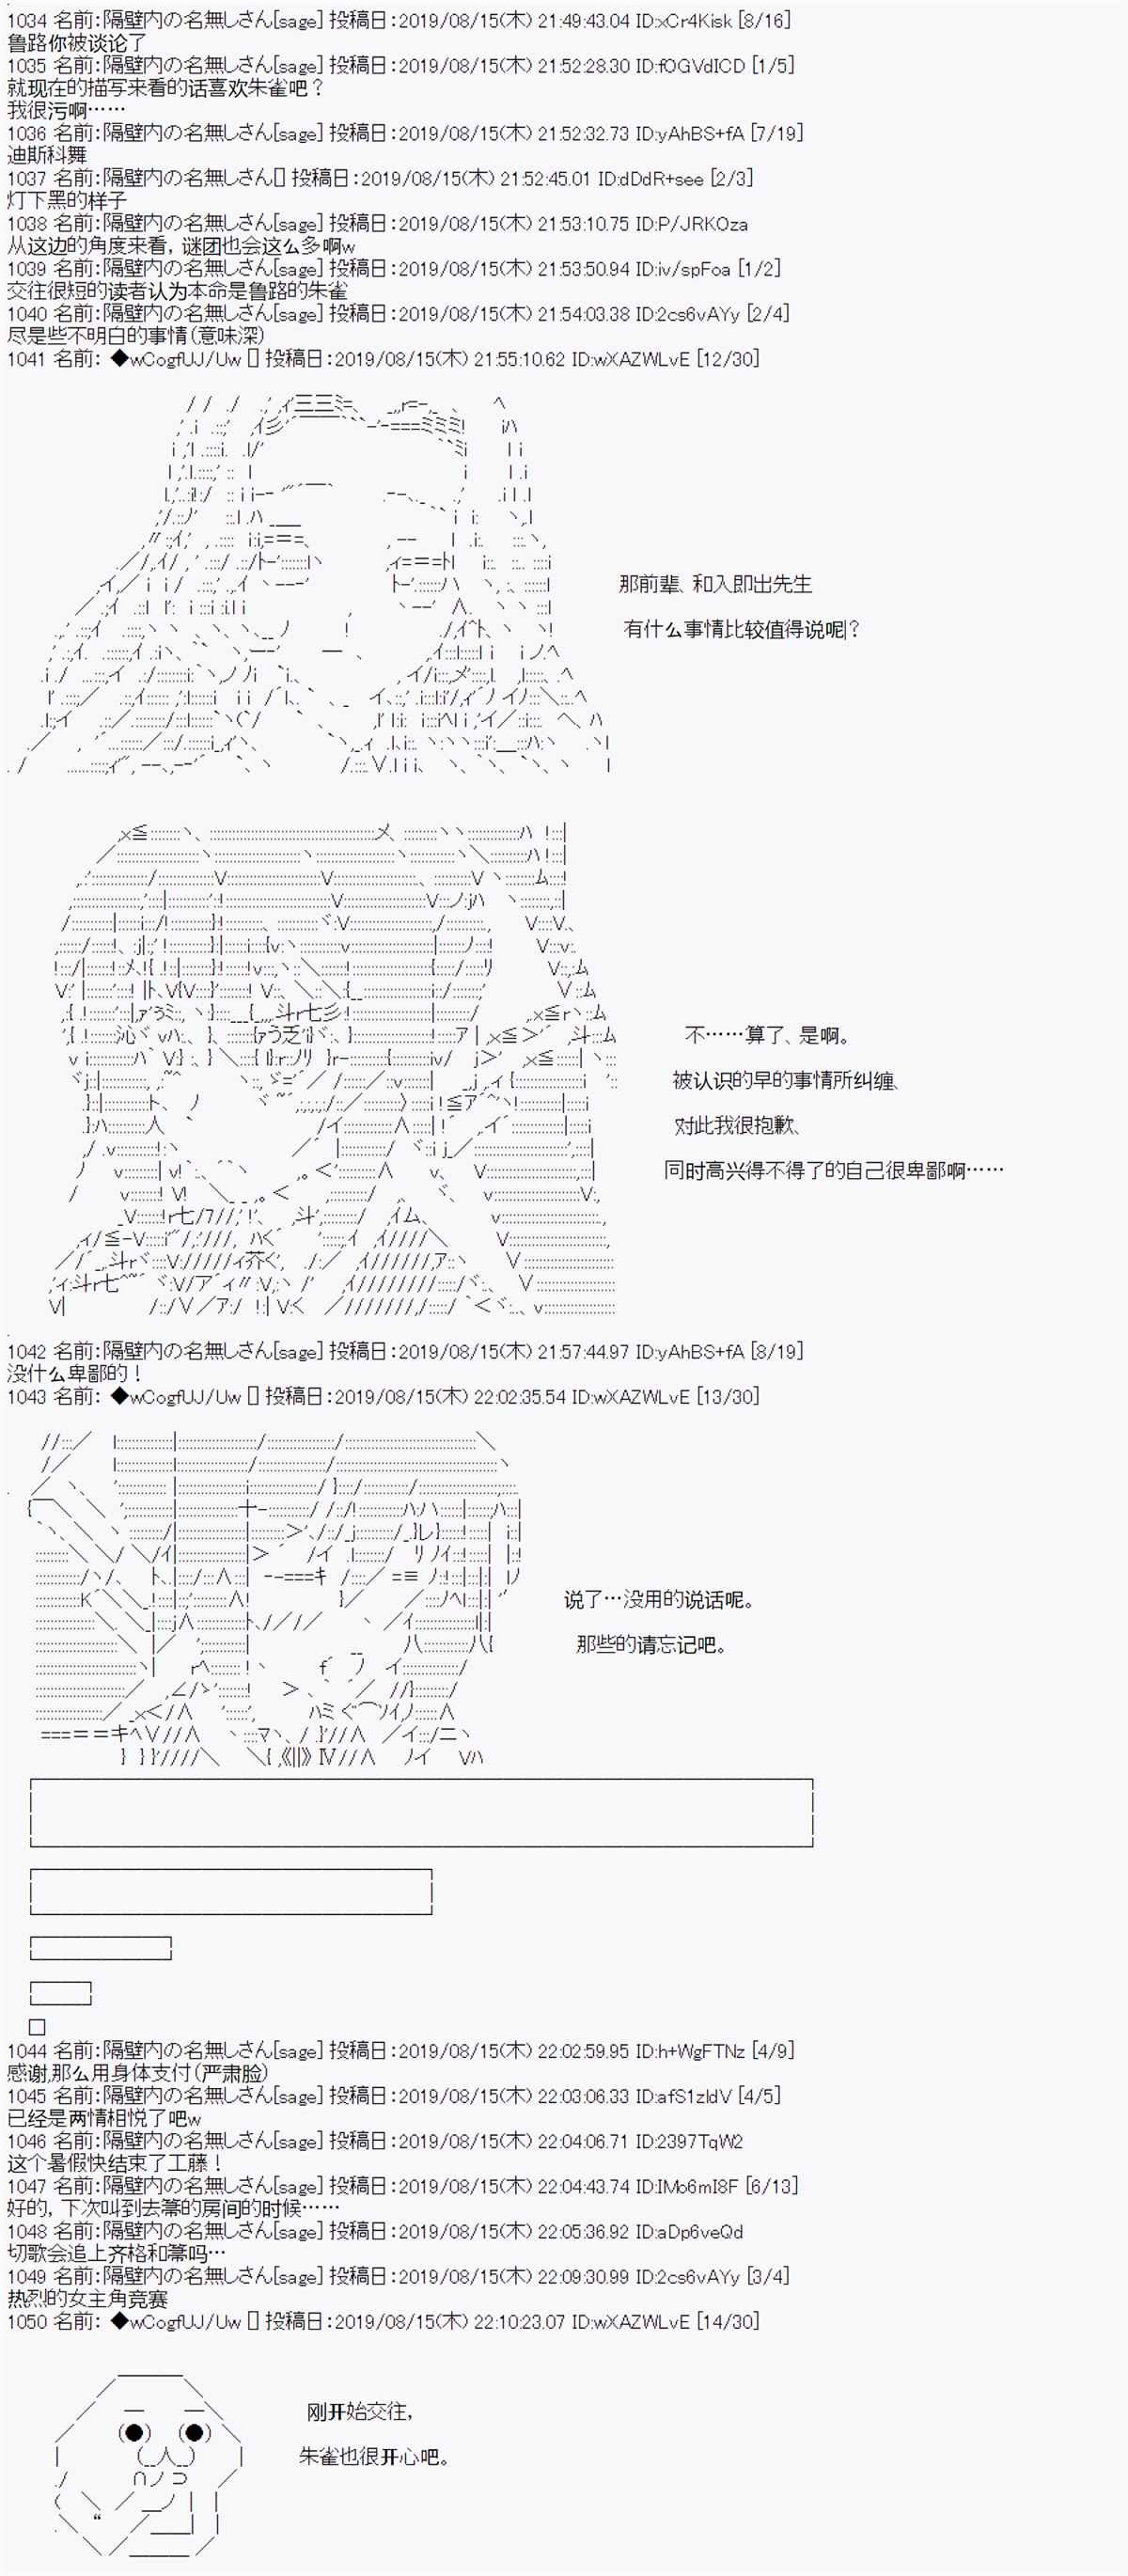 1034 名前：隔壁内の名無しさん[sage] 投稿日：2019/08/15(木) 21:49:43.04 ID:xCr4Kisk [8/16]
鲁路你被谈论了
1035 名前：隔壁内の名無しさん[sage] 投稿日：2019/08/15(木) 21:52:28.30 ID:fOGVdICD [1/5]
就现在的描写来看的话喜欢朱雀吧？
我很污啊……
1036 名前：隔壁内の名無しさん[sage] 投稿日：2019/08/15(木) 21:52:32.73 ID:yAhBS+fA [7/19]
迪斯科舞
1037 名前：隔壁内の名無しさん[] 投稿日：2019/08/15(木) 21:52:45.01 ID:dDdR+see [2/3]
灯下黑的样子
1038 名前：隔壁内の名無しさん[sage] 投稿日：2019/08/15(木) 21:53:10.75 ID:P/JRKOza
从这边的角度来看，谜团也会这么多啊w
1039 名前：隔壁内の名無しさん[sage] 投稿日：2019/08/15(木) 21:53:50.94 ID:iv/spFoa [1/2]
交往很短的读者认为本命是鲁路的朱雀
1040 名前：隔壁内の名無しさん[sage] 投稿日：2019/08/15(木) 21:54:03.38 ID:2cs6vAYy [2/4]
尽是些不明白的事情(意味深)
1041 名前： ◆wCogfUJ/Uw [] 投稿日：2019/08/15(木) 21:55:10.62 ID:wXAZWLvE [12/30]
那前辈、和入即出先生
有什么事情比较值得说呢？
不……算了、是啊。
被认识的早的事情所纠缠、
对此我很抱歉、
同时高兴得不得了的自己很卑鄙啊……
1042 名前：隔壁内の名無しさん[sage] 投稿日：2019/08/15(木) 21:57:44.97 ID:yAhBS+fA [8/19]
没什么卑鄙的！
1043 名前： ◆wCogfUJ/Uw [] 投稿日：2019/08/15(木) 22:02:35.54 ID:wXAZWLvE [13/30]
说了…没用的说话呢。
那些的请忘记吧。
1044 名前：隔壁内の名無しさん[sage] 投稿日：2019/08/15(木) 22:02:59.95 ID:h+WgFTNz [4/9]
感谢,那么用身体支付(严肃脸)
1045 名前：隔壁内の名無しさん[sage] 投稿日：2019/08/15(木) 22:03:06.33 ID:afS1zldV [4/5]
已经是两情相悦了吧w
1046 名前：隔壁内の名無しさん[sage] 投稿日：2019/08/15(木) 22:04:06.71 ID:2397TqW2
这个暑假快结束了工藤！
1047 名前：隔壁内の名無しさん[sage] 投稿日：2019/08/15(木) 22:04:43.74 ID:IMo6mI8F [6/13]
好的，下次叫到去箒的房间的时候……
1048 名前：隔壁内の名無しさん[sage] 投稿日：2019/08/15(木) 22:05:36.92 ID:aDp6veQd
切歌会追上齐格和箒吗…
1049 名前：隔壁内の名無しさん[sage] 投稿日：2019/08/15(木) 22:09:30.99 ID:2cs6vAYy [3/4]
热烈的女主角竞赛
1050 名前： ◆wCogfUJ/Uw [] 投稿日：2019/08/15(木) 22:10:23.07 ID:wXAZWLvE [14/30]
刚开始交往，
朱雀也很开心吧。